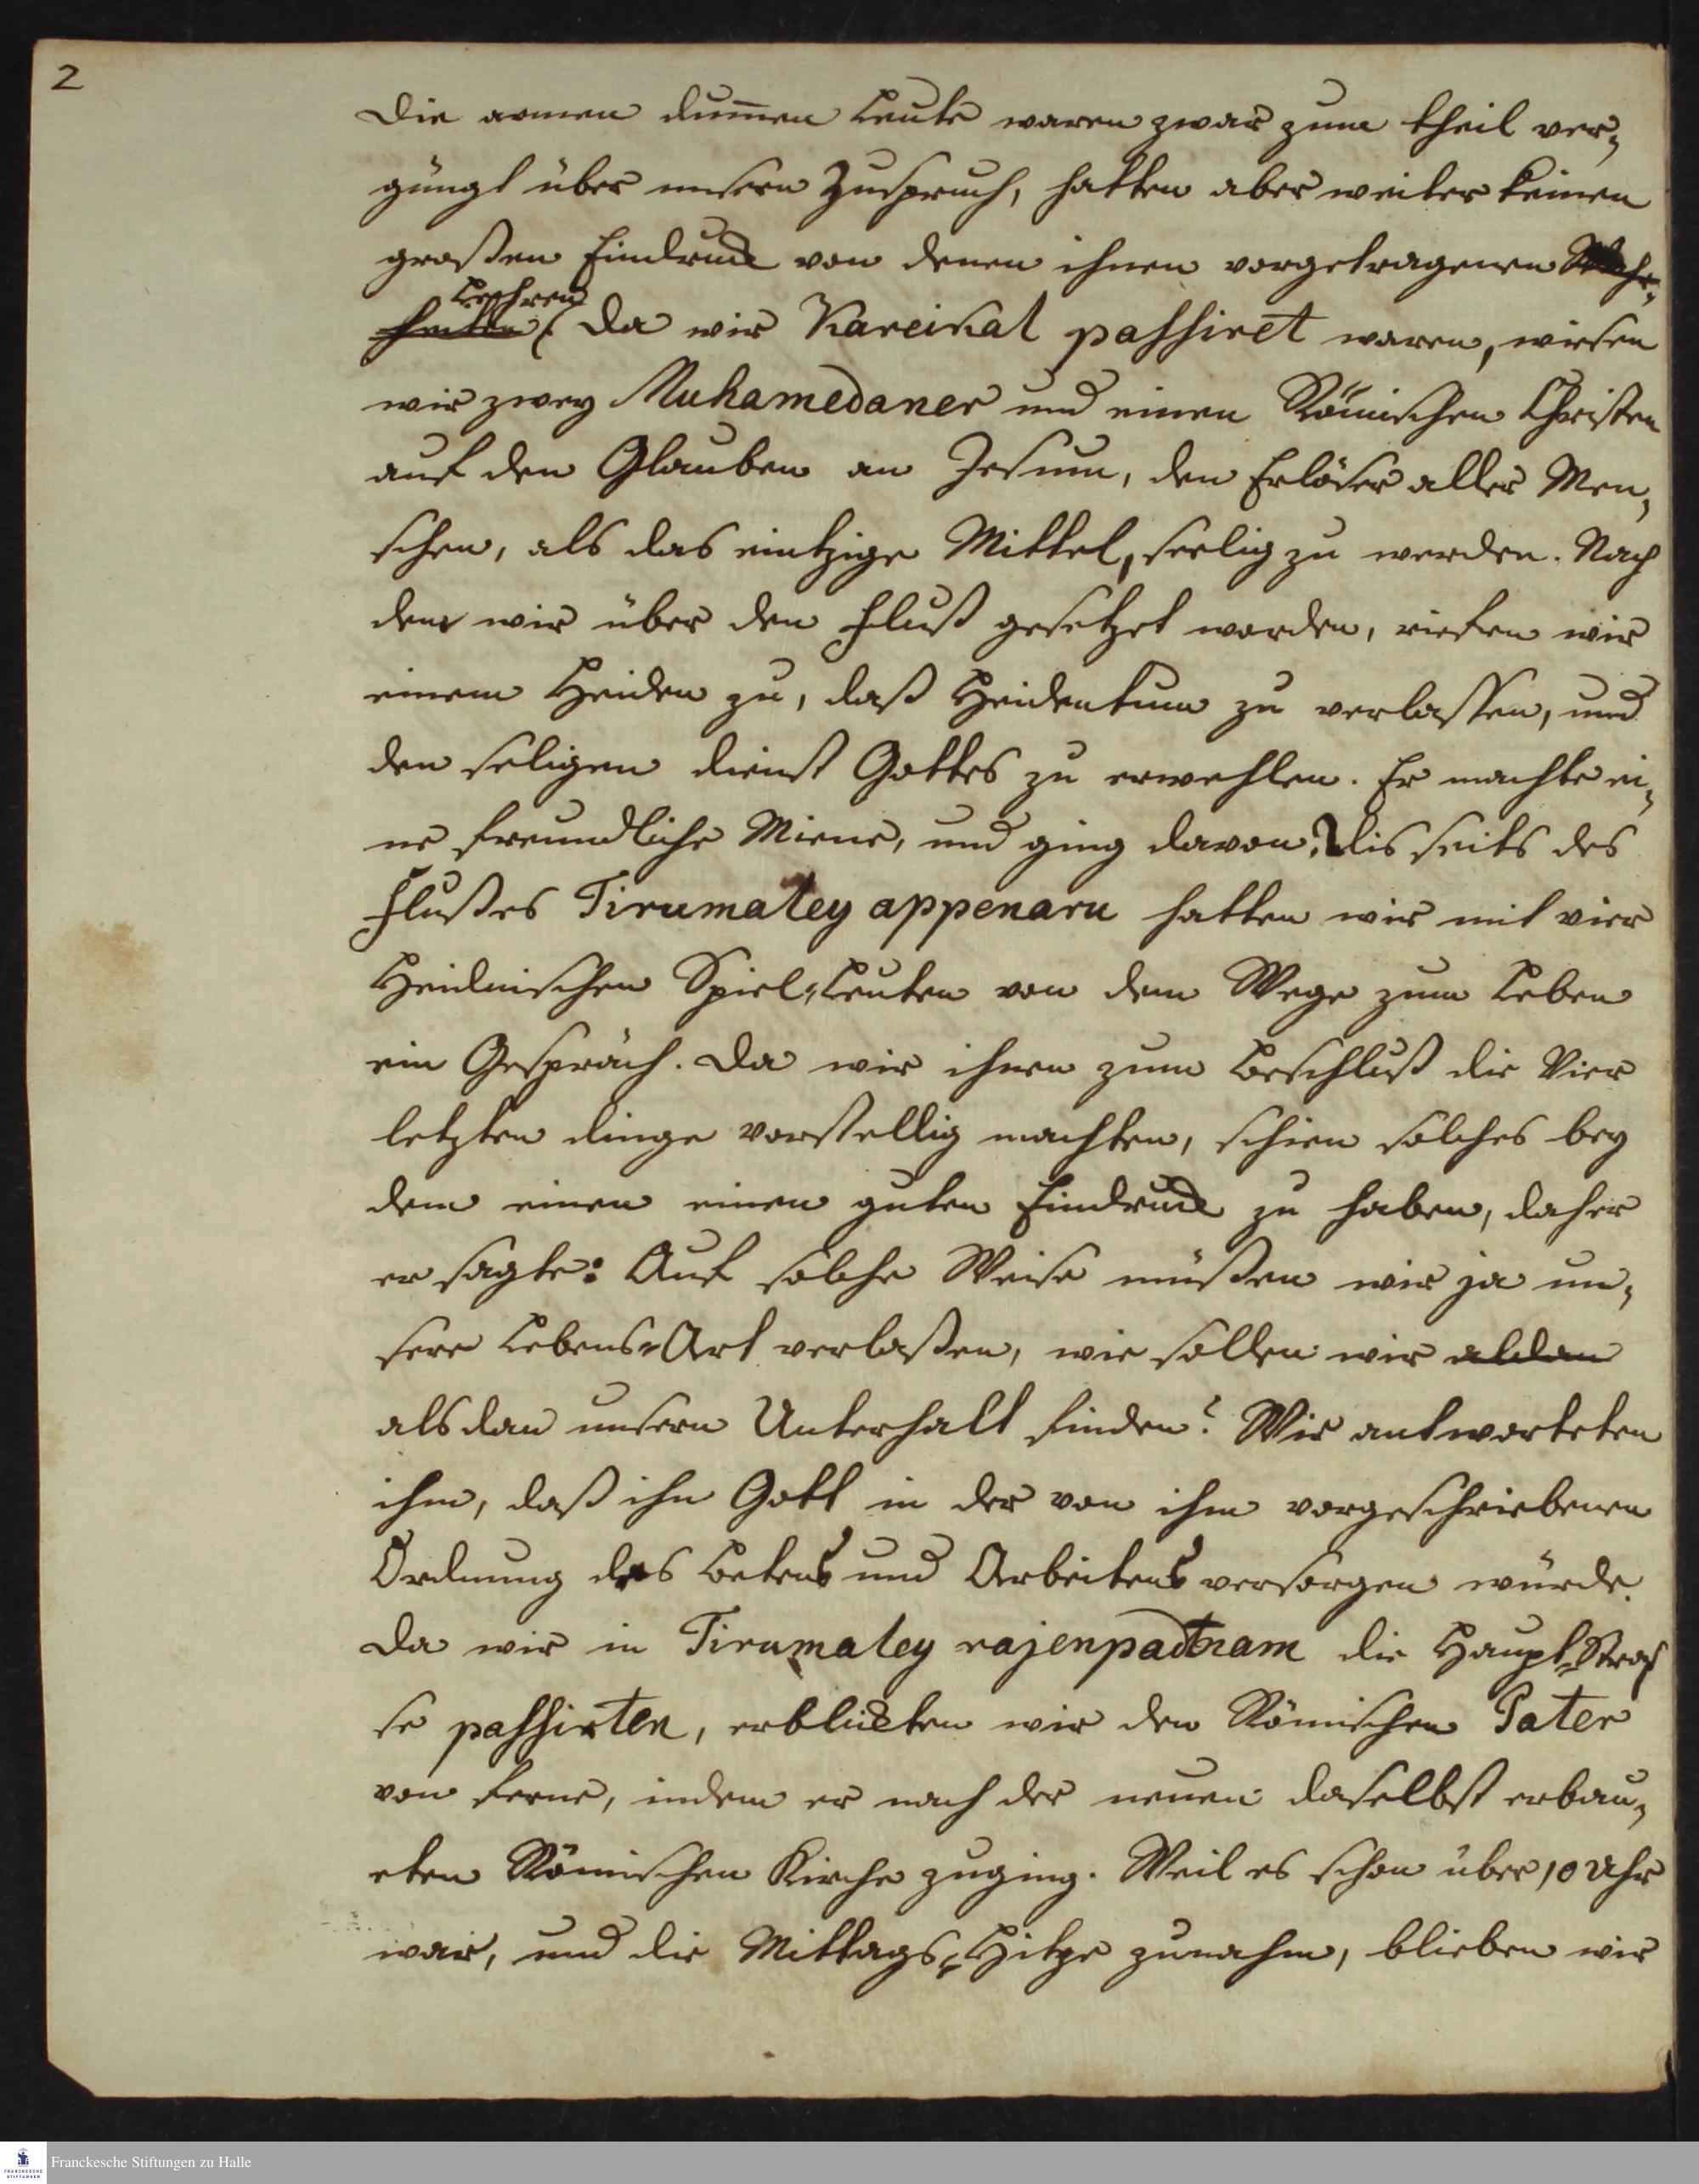 2
Die armen dum̅en Leute waren zwar zum theil ver¬
gnügt über unsern Zuspruch, hatten aber weiter keinen
großen Eindruck von denen ihnen vorgetragenen Wahr¬
Lehren
heiten. Da wir Kareikal passiret waren, wiesen
wir zwey Muhamedaner und einen Römischen Christen
auf den Glauben an Jesum, den Erlöser aller Men¬
schen, als das eintzige Mittel, seelig zu werden. Nach
dem wir über den Fluß gesetzet worden, riefen wir
einem Heiden zu, daß Heidentum zu verlassen, und
den seligen dienst Gottes zu erwehlen. Er machte ei¬
ne freundliche Miene, und ging davon. Disseits des
Flußes Tirumaley appenaru hatten wir mit vier
Heidnischen Spiel-Leuten von dem Wege zum Leben
ein Gespräch. Da wir ihnen zum Beschluß die Vier
letzten dinge vorstellig machten, schien solches bey
dem einen einen guten Eindruck zu haben, daher
er sagte: Auf solche Weise müßen wir ja un¬
sere Lebens-Art verlaßen, wie sollen wir aldan
alsdan unsern Unterhalt finden? Wir antworteten
ihm, daß ihn Gott in der von ihm vorgeschriebenen
Ordnung des Betens und Arbeitens versorgen würde.
Da wir in Tirumaley rajenpadnam die Haupt-Stras
se passirten, erblickten wir den Römischen Pater
von ferne, indem er nach der neuen daselbst erbau¬
eten Römischen Kirche zuging. Weil es schon über 10 Uhr
war, und die Mittags-Hitze zunahm, blieben wir
Franckesche Stiftungen zu Halle